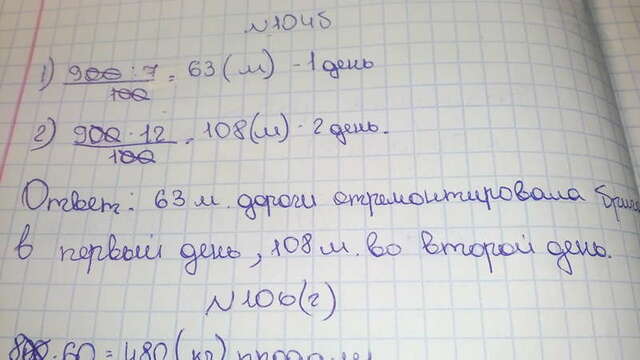 №1045
1) 900 : 7 / 100 = 63 (м) - 1 день
2) 900 · 12 / 100 = 108 (м) - 2 день.
Ответ: 63 м. дороги отремонтировала
в первый день, 108 м. во второй день.
№106(г)
800·60 = 480 (кг)